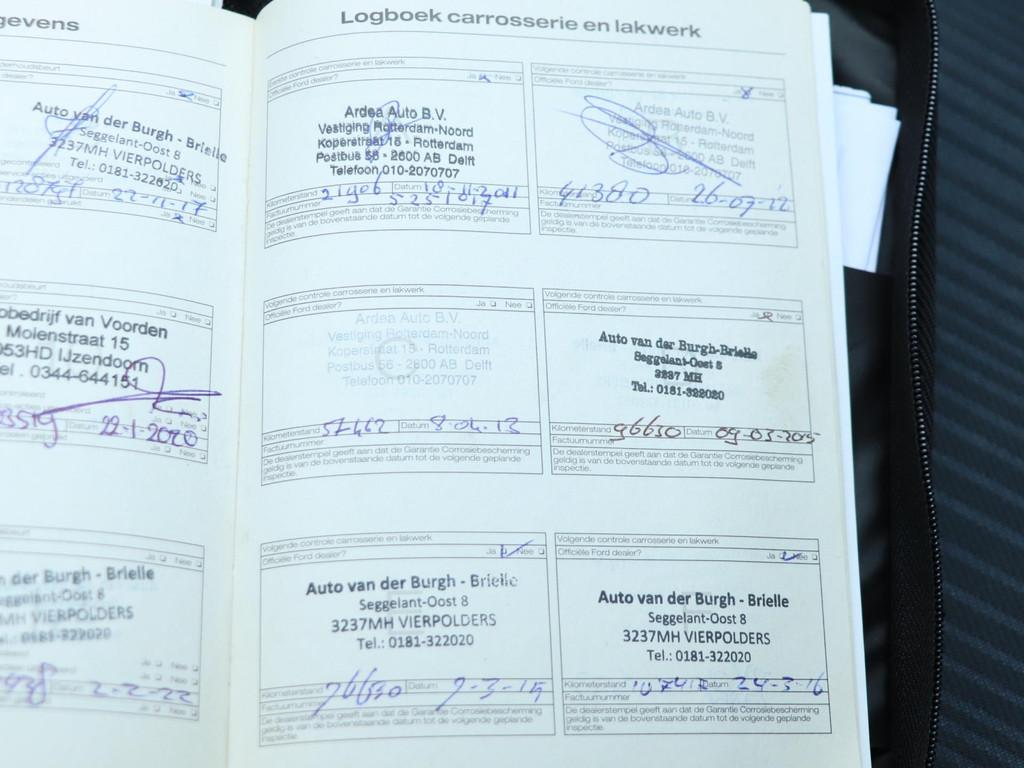 gevens
derhoudsbeurt
dealer?
Ja Nee
Auto van der Burgh - Brielle
Seggelant-Oost 8
3237MH VIERPOLDERS
Tel.: 0181-322020.
Datum 22-11-17
Ja Nee
houdsbeurt
Ja Nee
obedrijf van Voorden
Molenstraat 15
053HD IJzendoorn
el. 0344-644151
Datum 22-1-2020
Ja Nee
n der Burgh - Brielle
eggelant-Oost 8
MH VIERPOLDERS
el.: 0181-322020
Ja Nee
Datum 2-2-22
Logboek carrosserie en lakwerk
Eerste controle carrosserie en lakwerk
Officiële Ford dealer? Ja Nee
Ardea Auto B.V.
Vestiging Rotterdam-Noord
Koperstraat 15 - Rotterdam
Postbus 56 - 2600 AB Delft
Telefoon 010-2070707
Kilometerstand 21906 Datum 18-11-2011
Factuurnummer
De dealerstempel geeft aan dat de Garantie Corrosiebescherming
geldig is van de bovenstaande datum tot de volgende geplande
inspectie.
Volgende controle carrosserie en lakwerk
Officiële Ford dealer? Ja Nee
Ardea Auto B.V.
Vestiging Rotterdam-Noord
Koperstraat 15 - Rotterdam
Postbus 56 - 2600 AB Delft
Telefoon 010-2070707
Kilometerstand 41380 Datum 26-07-12
Factuurnummer
De dealerstempel geeft aan dat de Garantie Corrosiebescherming
geldig is van de bovenstaande datum tot de volgende geplande
inspectie.
Volgende controle carrosserie en lakwerk
Officiële Ford dealer? Ja Nee
Ardea Auto B.V.
Vestiging Rotterdam-Noord
Koperstraat 15 - Rotterdam
Postbus 56 - 2600 AB Delft
Telefoon 010-2070707
Kilometerstand 57462 Datum 8-04-13
Factuurnummer
De dealerstempel geeft aan dat de Garantie Corrosiebescherming
geldig is van de bovenstaande datum tot de volgende geplande
inspectie.
Volgende controle carrosserie en lakwerk
Officiële Ford dealer? Ja Nee
Auto van der Burgh-Brielle
Seggelant-Oost 8
3237 MH
Tel.: 0181-322020
Kilometerstand 96630 Datum 09-03-2015
Factuurnummer
De dealerstempel geeft aan dat de Garantie Corrosiebescherming
geldig is van de bovenstaande datum tot de volgende geplande
inspectie.
Volgende controle carrosserie en lakwerk
Officiële Ford dealer? Ja Nee
Auto van der Burgh - Brielle
Seggelant-Oost 8
3237MH VIERPOLDERS
Tel.: 0181-322020
Kilometerstand 96630 Datum 9-3-15
Factuurnummer
De dealerstempel geeft aan dat de Garantie Corrosiebescherming
geldig is van de bovenstaande datum tot de volgende geplande
inspectie.
Volgende controle carrosserie en lakwerk
Officiële Ford dealer? Ja Nee
Auto van der Burgh - Brielle
Seggelant-Oost 8
3237MH VIERPOLDERS
Tel.: 0181-322020
Kilometerstand Datum 24-3-16
Factuurnummer
De dealerstempel geeft aan dat de Garantie Corrosiebescherming
geldig is van de bovenstaande datum tot de volgende geplande
inspectie.